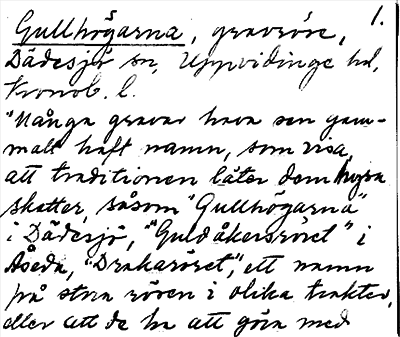 1.
Gullhögarna, gravrör,
Dädesjö sn, Uppvidinge hd,
Kronob. l.
"Många gravar hava sen gam-
malt haft namn, som visa,
att traditionen låter dem hysa
skatter, såsom "Gullhögarna"
i Dädesjö, "Guldåkersröret" i
Åseda, "Drakaröret", ett namn
på stora rösen i olika trakter,
eller att de ha att göra med